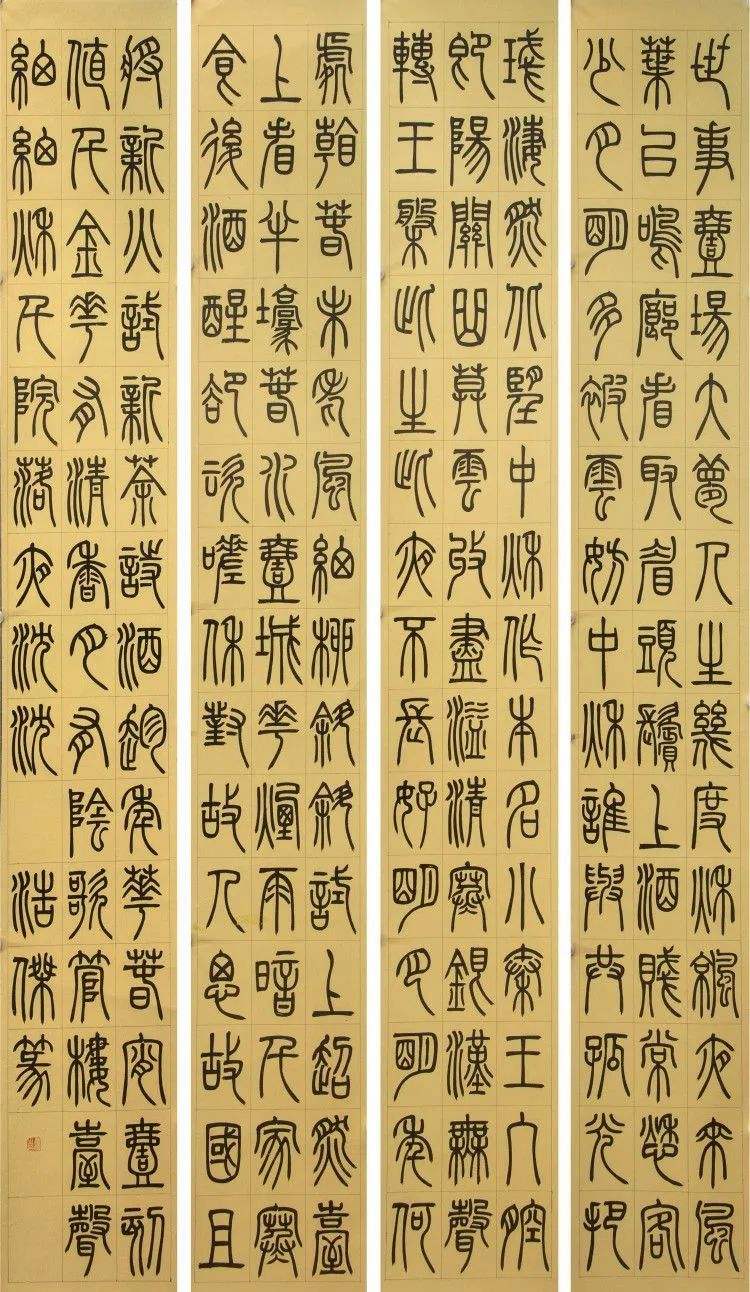 世事壹場大夢人生幾度秋涼夜來風
葉已鳴廊看取眉頭鬢上酒賤常愁客
少月明多被雲妨中秋誰與共孤光把
琖淒然北望中秋作本名小秦王入腔
即陽關曲莫雲收盡溢清寒銀漢無聲
轉玉盤此生此夜不長好明月明年何
處看春未老風細柳斜斜試上超然臺
上看半壕春水壹城花煙雨暗千家寒
食後酒醒卻咨嗟休對故人思故國且
將新火試新茶詩酒趁年華春宵壹刻
值千金花有清香月有陰歌管樓臺聲
細細秋千院落夜沈沈 浩傑篆